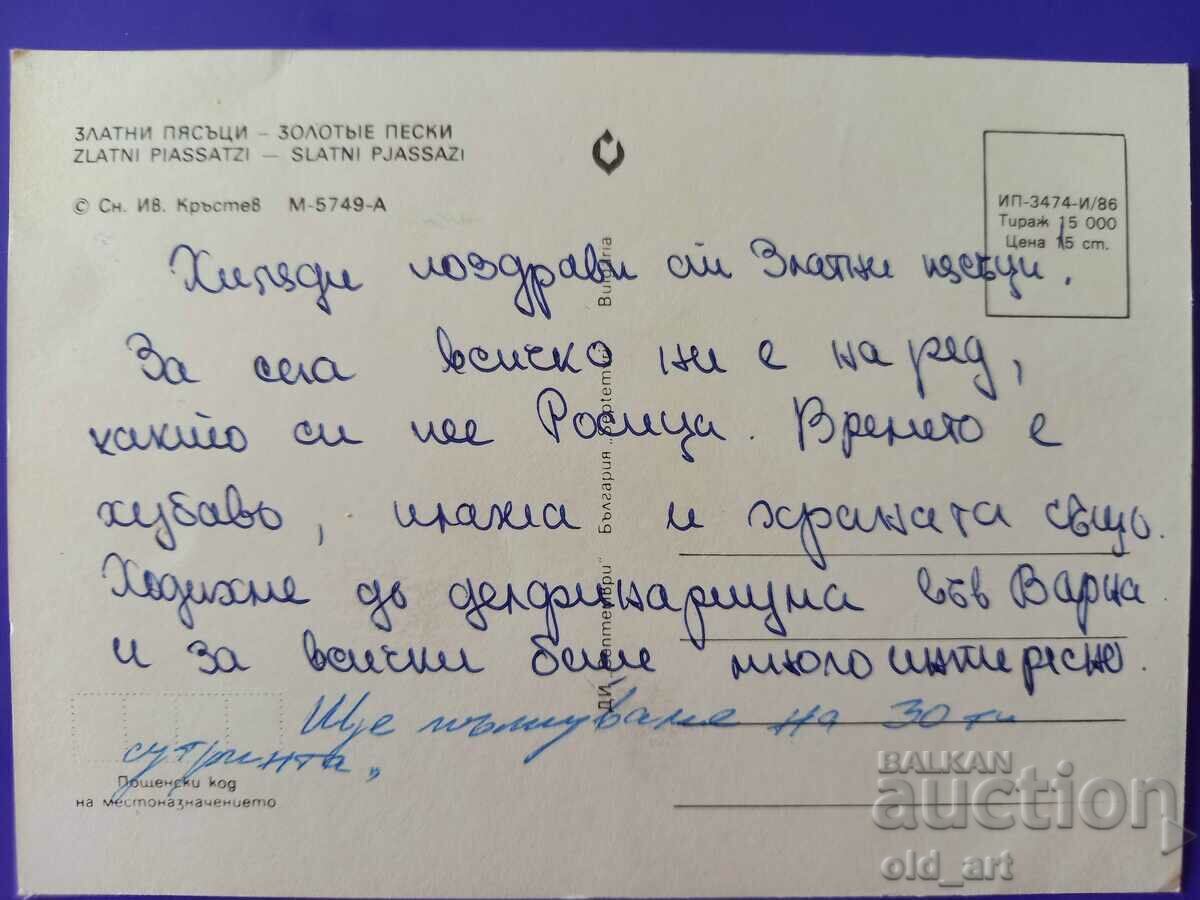 ЗЛАТНИ ПЯСЪЦИ – ЗОЛОТЫЕ ПЕСКИ
ZLATNI PIASSATZI — SLATNI PJASSAZI
© Сн. Ив. Кръстев М-5749-А
ИП-3474-И/86
Тираж 15 000
Цена 15 ст.
Хиляди поздрави от Златни пясъци.
За сега всичко ни е на ред,
както си пее Росица. Времето е
хубаво, плажа и храната също.
Ходихме до делфинариума във Варна
и за всички беше много интересно.
Ще пътуваме на 30 ти
сутринта.
ДИ „Септември“ България „Septemvri“ Bulgaria
Пощенски код
на местоназначението
BALKAN
auction
old_art